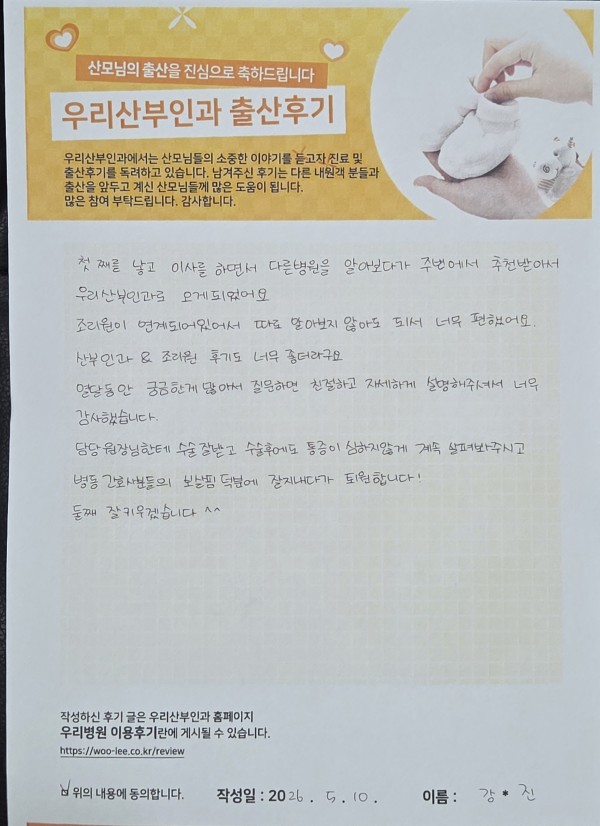 산모님의 출산을 진심으로 축하드립니다
우리산부인과 출산후기
우리산부인과에서는 산모님들의 소중한 이야기를 듣고자 진료 및
출산후기를 독려하고 있습니다. 남겨주신 후기는 다른 내원객 분들과
출산을 앞두고 계신 산모님들께 많은 도움이 됩니다.
많은 참여 부탁드립니다. 감사합니다.
첫째를 낳고 이사를 하면서 다른병원을 알아보다가 주변에서 추천받아서
우리산부인과로 오게되었어요
조리원이 연계되어있어서 따로 알아보지 않아도 되서 너무 편했어요.
산부인과 & 조리원 후기도 너무 좋더라구요
열달동안 궁금한게 많아서 질문하면 친절하고 자세하게 설명해주셔서 너무
감사했습니다.
담당원장님한테 수술 잘받고 수술후에도 통증이 심하지않게 계속 살펴봐주시고
병동 간호사분들의 보살핌 덕분에 잘지내다가 퇴원합니다!
둘째 잘키우겠습니다 ^^
작성하신 후기 글은 우리산부인과 홈페이지
우리병원 이용후기란에 게시될 수 있습니다.
https://woo-lee.co.kr/review
위의 내용에 동의합니다. 작성일 : 2026. 5. 10. 이름 : 강 * 진